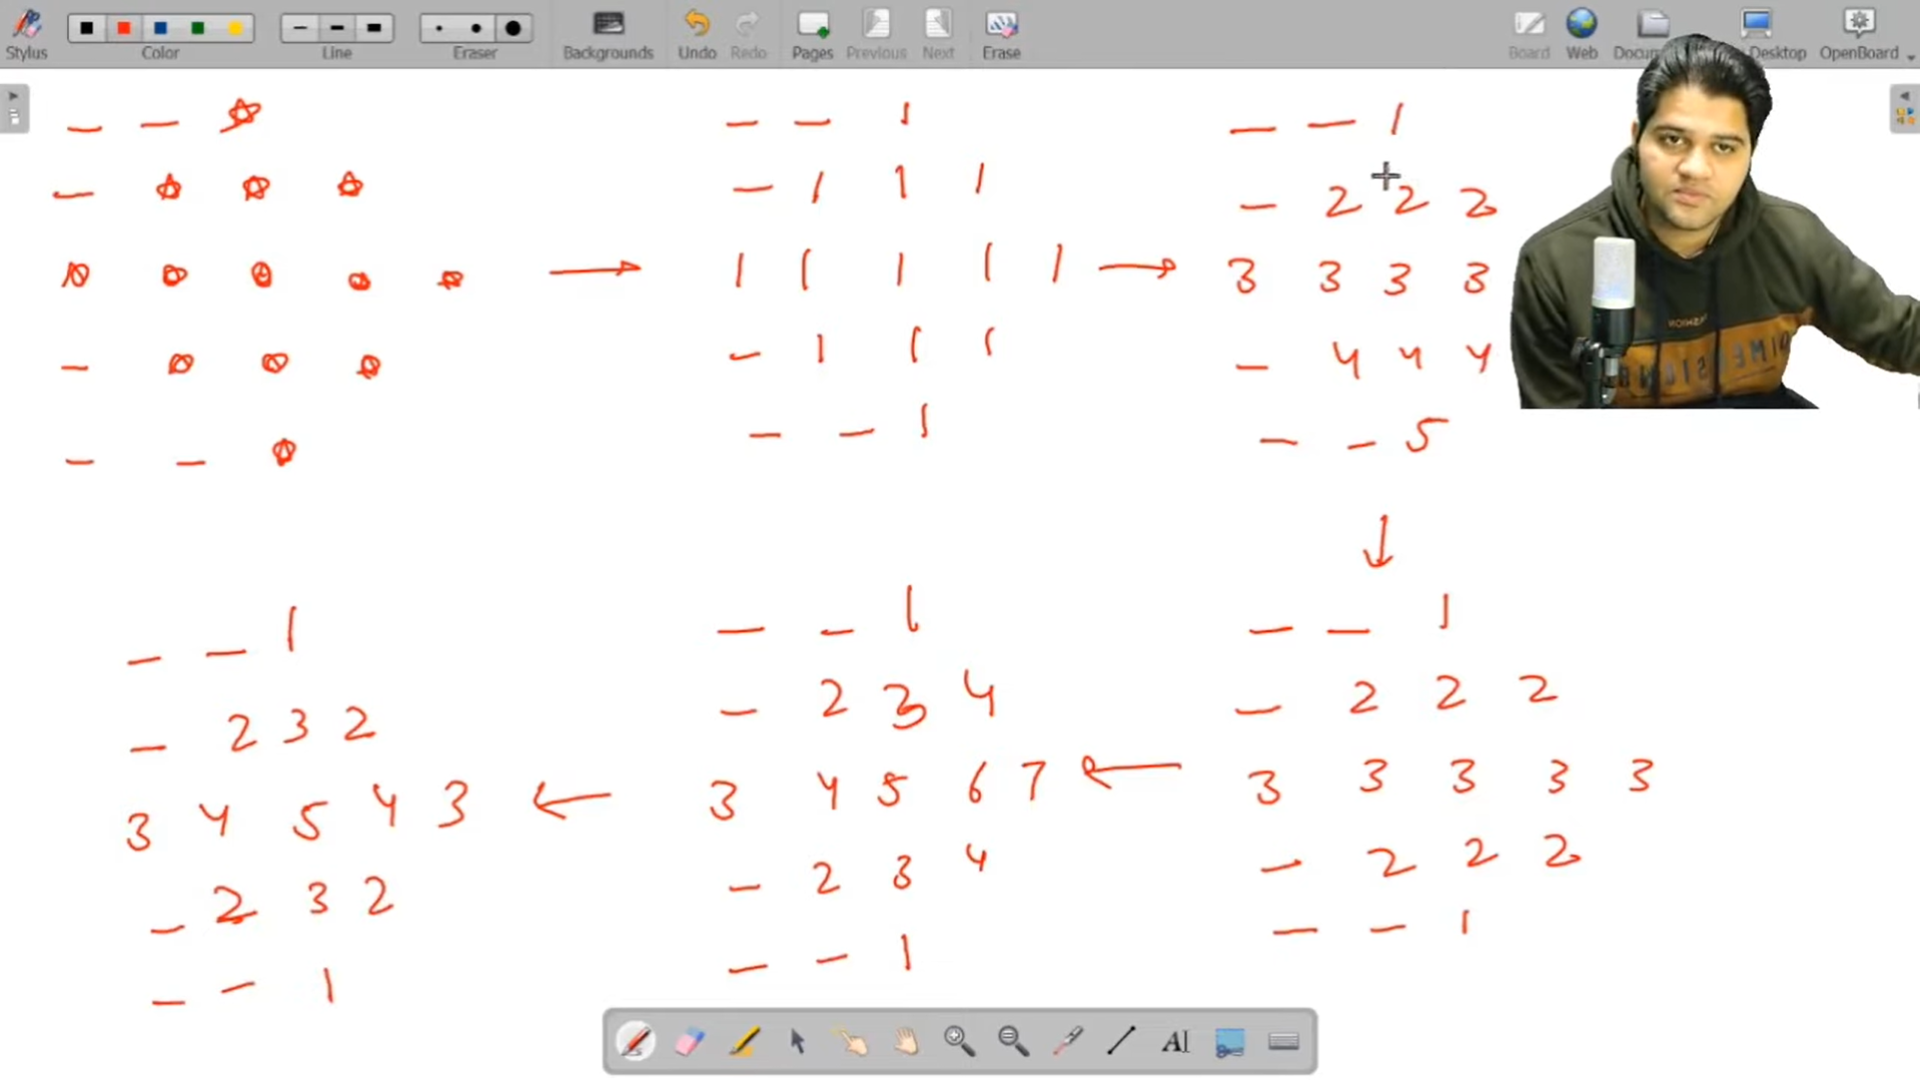 Stylus Color Line Eraser Backgrounds Undo Redo Pages Previous Next Erase Board Web Desktop OpenBoard
— — ☆
— ☆ ☆ ☆
☆ ☆ ☆ ☆ ☆ →
— ☆ ☆ ☆
— — ☆
— — 1
— 1 1 1
1 1 1 1 1 →
— 1 1 1
— — 1
— — 1
— 2 2 2
3 3 3 3
— 4 4 4
— — 5
↓
— — 1
— 2 2 2
3 3 3 3 3
— 2 2 2
— — 1
← 
— — 1
— 2 3 4
3 4 5 6 7
— 2 3 4
— — 1
←
— — 1
— 2 3 2
3 4 5 4 3
— 2 3 2
— — 1
AI